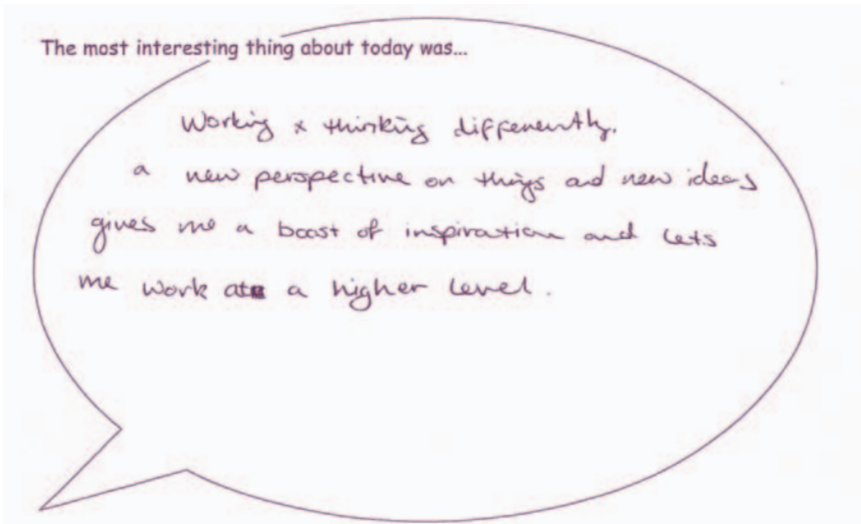 The most interesting thing about today was...
Working & thinking differently.
a new perspective on things and new ideas
gives me a boost of inspiration and lets
me work at a higher level.